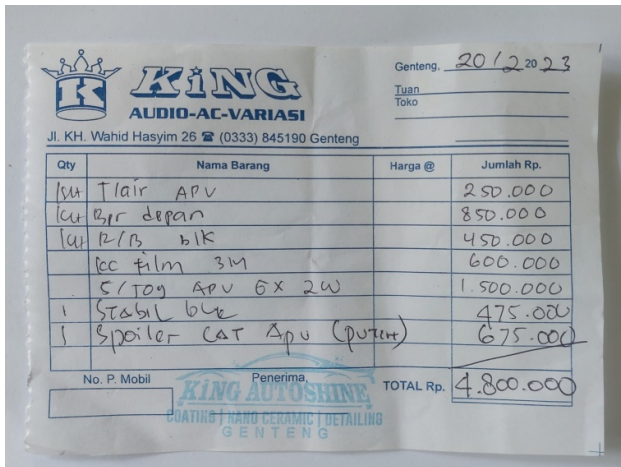 KING
AUDIO-AC-VARIASI
Jl. KH. Wahid Hasyim 26 ☎ (0333) 845190 Genteng
Genteng, 20/2 2023
Tuan
Toko
Qty Nama Barang Harga @ Jumlah Rp.
Tlair APV 250.000
depan 850.000
R/B blk 450.000
kc film 3M 600.000
APV 1.500.000
1 Stabil 475.000
1 Spoiler CAT Apv (putih) 675.000
No. P. Mobil Penerima, TOTAL Rp. 4.800.000
KING AUTOSHINE
COATING | NANO CERAMIC | DETAILING
GENTENG